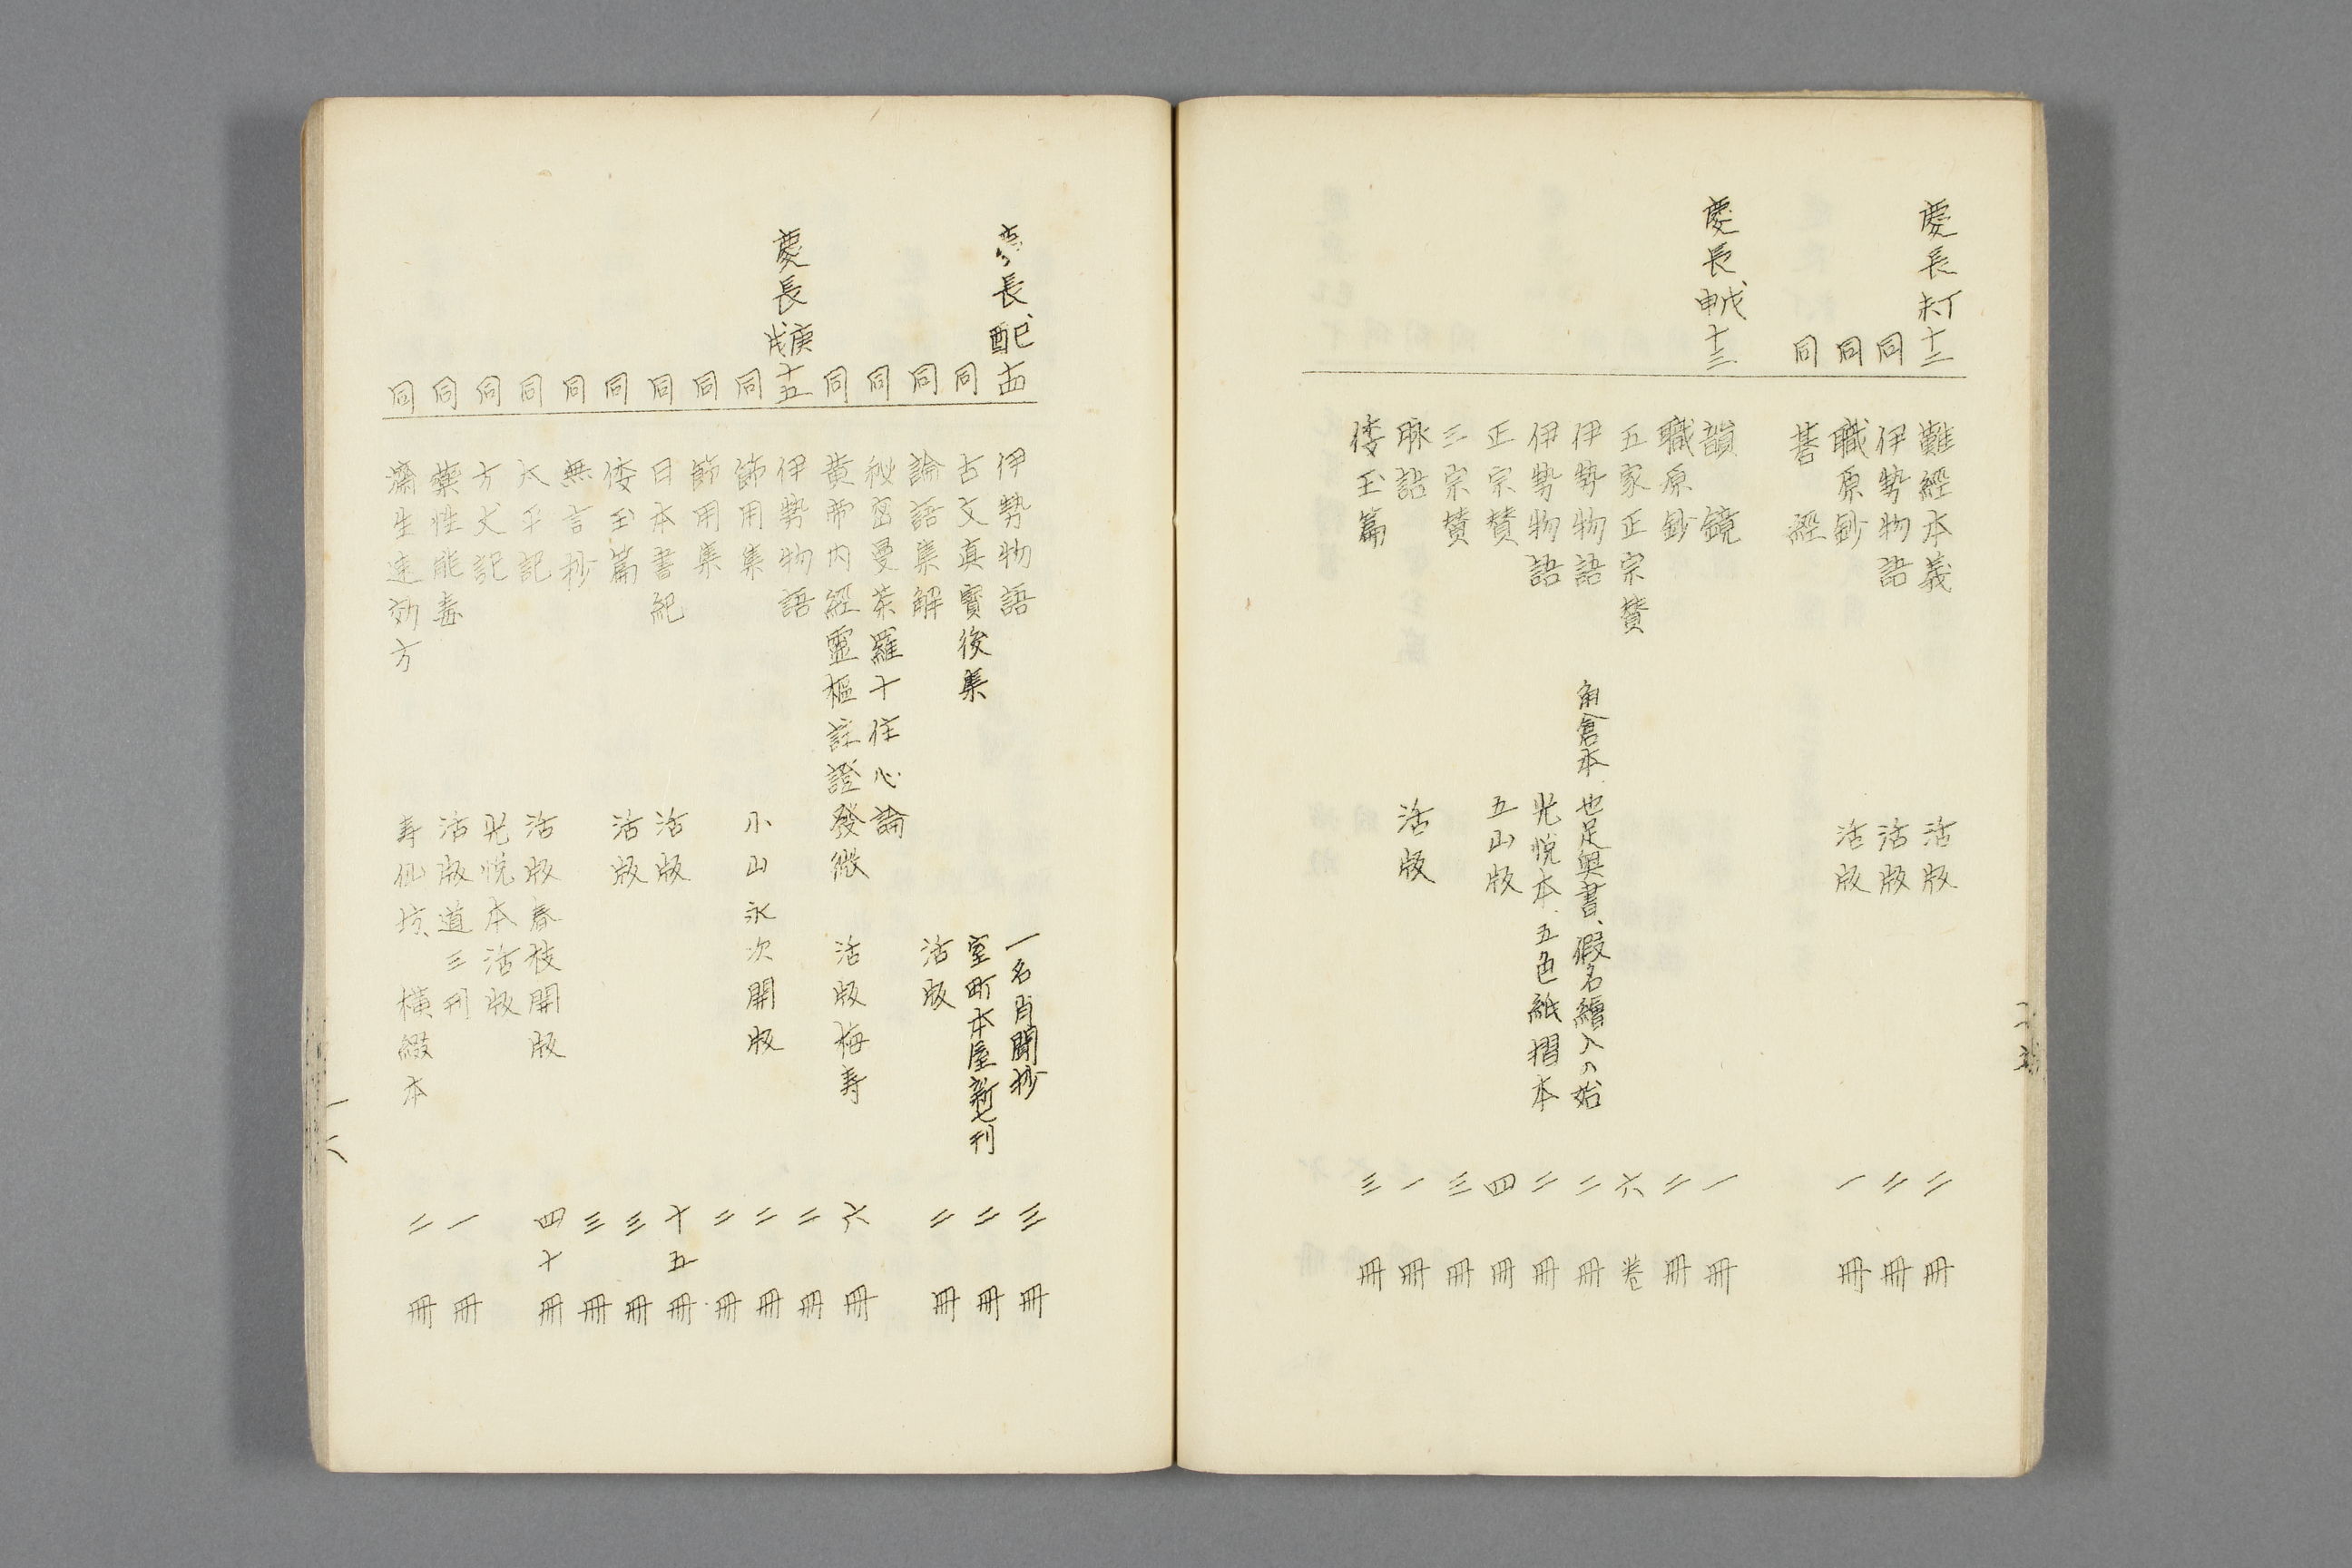 慶長丁未十二 難經本義 活版 二冊
同 伊勢物語 活版 二冊
同 職原鈔 活版 一冊
同 碁經
慶長戊申十三 韻鏡 一冊
職原鈔 二冊
五家正宗賛 六巻
伊勢物語 角倉本 也足奥書、假名繪入の始 二冊
伊勢物語 光悦本 五色紙摺本 二冊
正宗賛 五山版 四冊
三宗賛 三冊
脉語 活版 一冊
倭玉篇 三冊
慶長己酉十四 伊勢物語 一名肖聞抄 三冊
同 古文真寳後集 室町本屋新七刊 二冊
同 論語集解 活版 二冊
同 秘密曼荼羅十住心論
同 黄帝内經靈樞註證發微 活版梅寿 六冊
慶長庚戌十五 伊勢物語 二冊
同 飾用集 小山永次開版 二冊
同 飾用集 二冊
同 日本書紀 活版 十五冊
同 倭玉篇 活版 三冊
同 無言抄 三冊
同 太平記 活版春枝開版 四十冊
同 方丈記 光悦本活版
同 藥性能毒 活版道三刊 一冊
同 濟生速効方 寿仙坊、横綴本 二冊